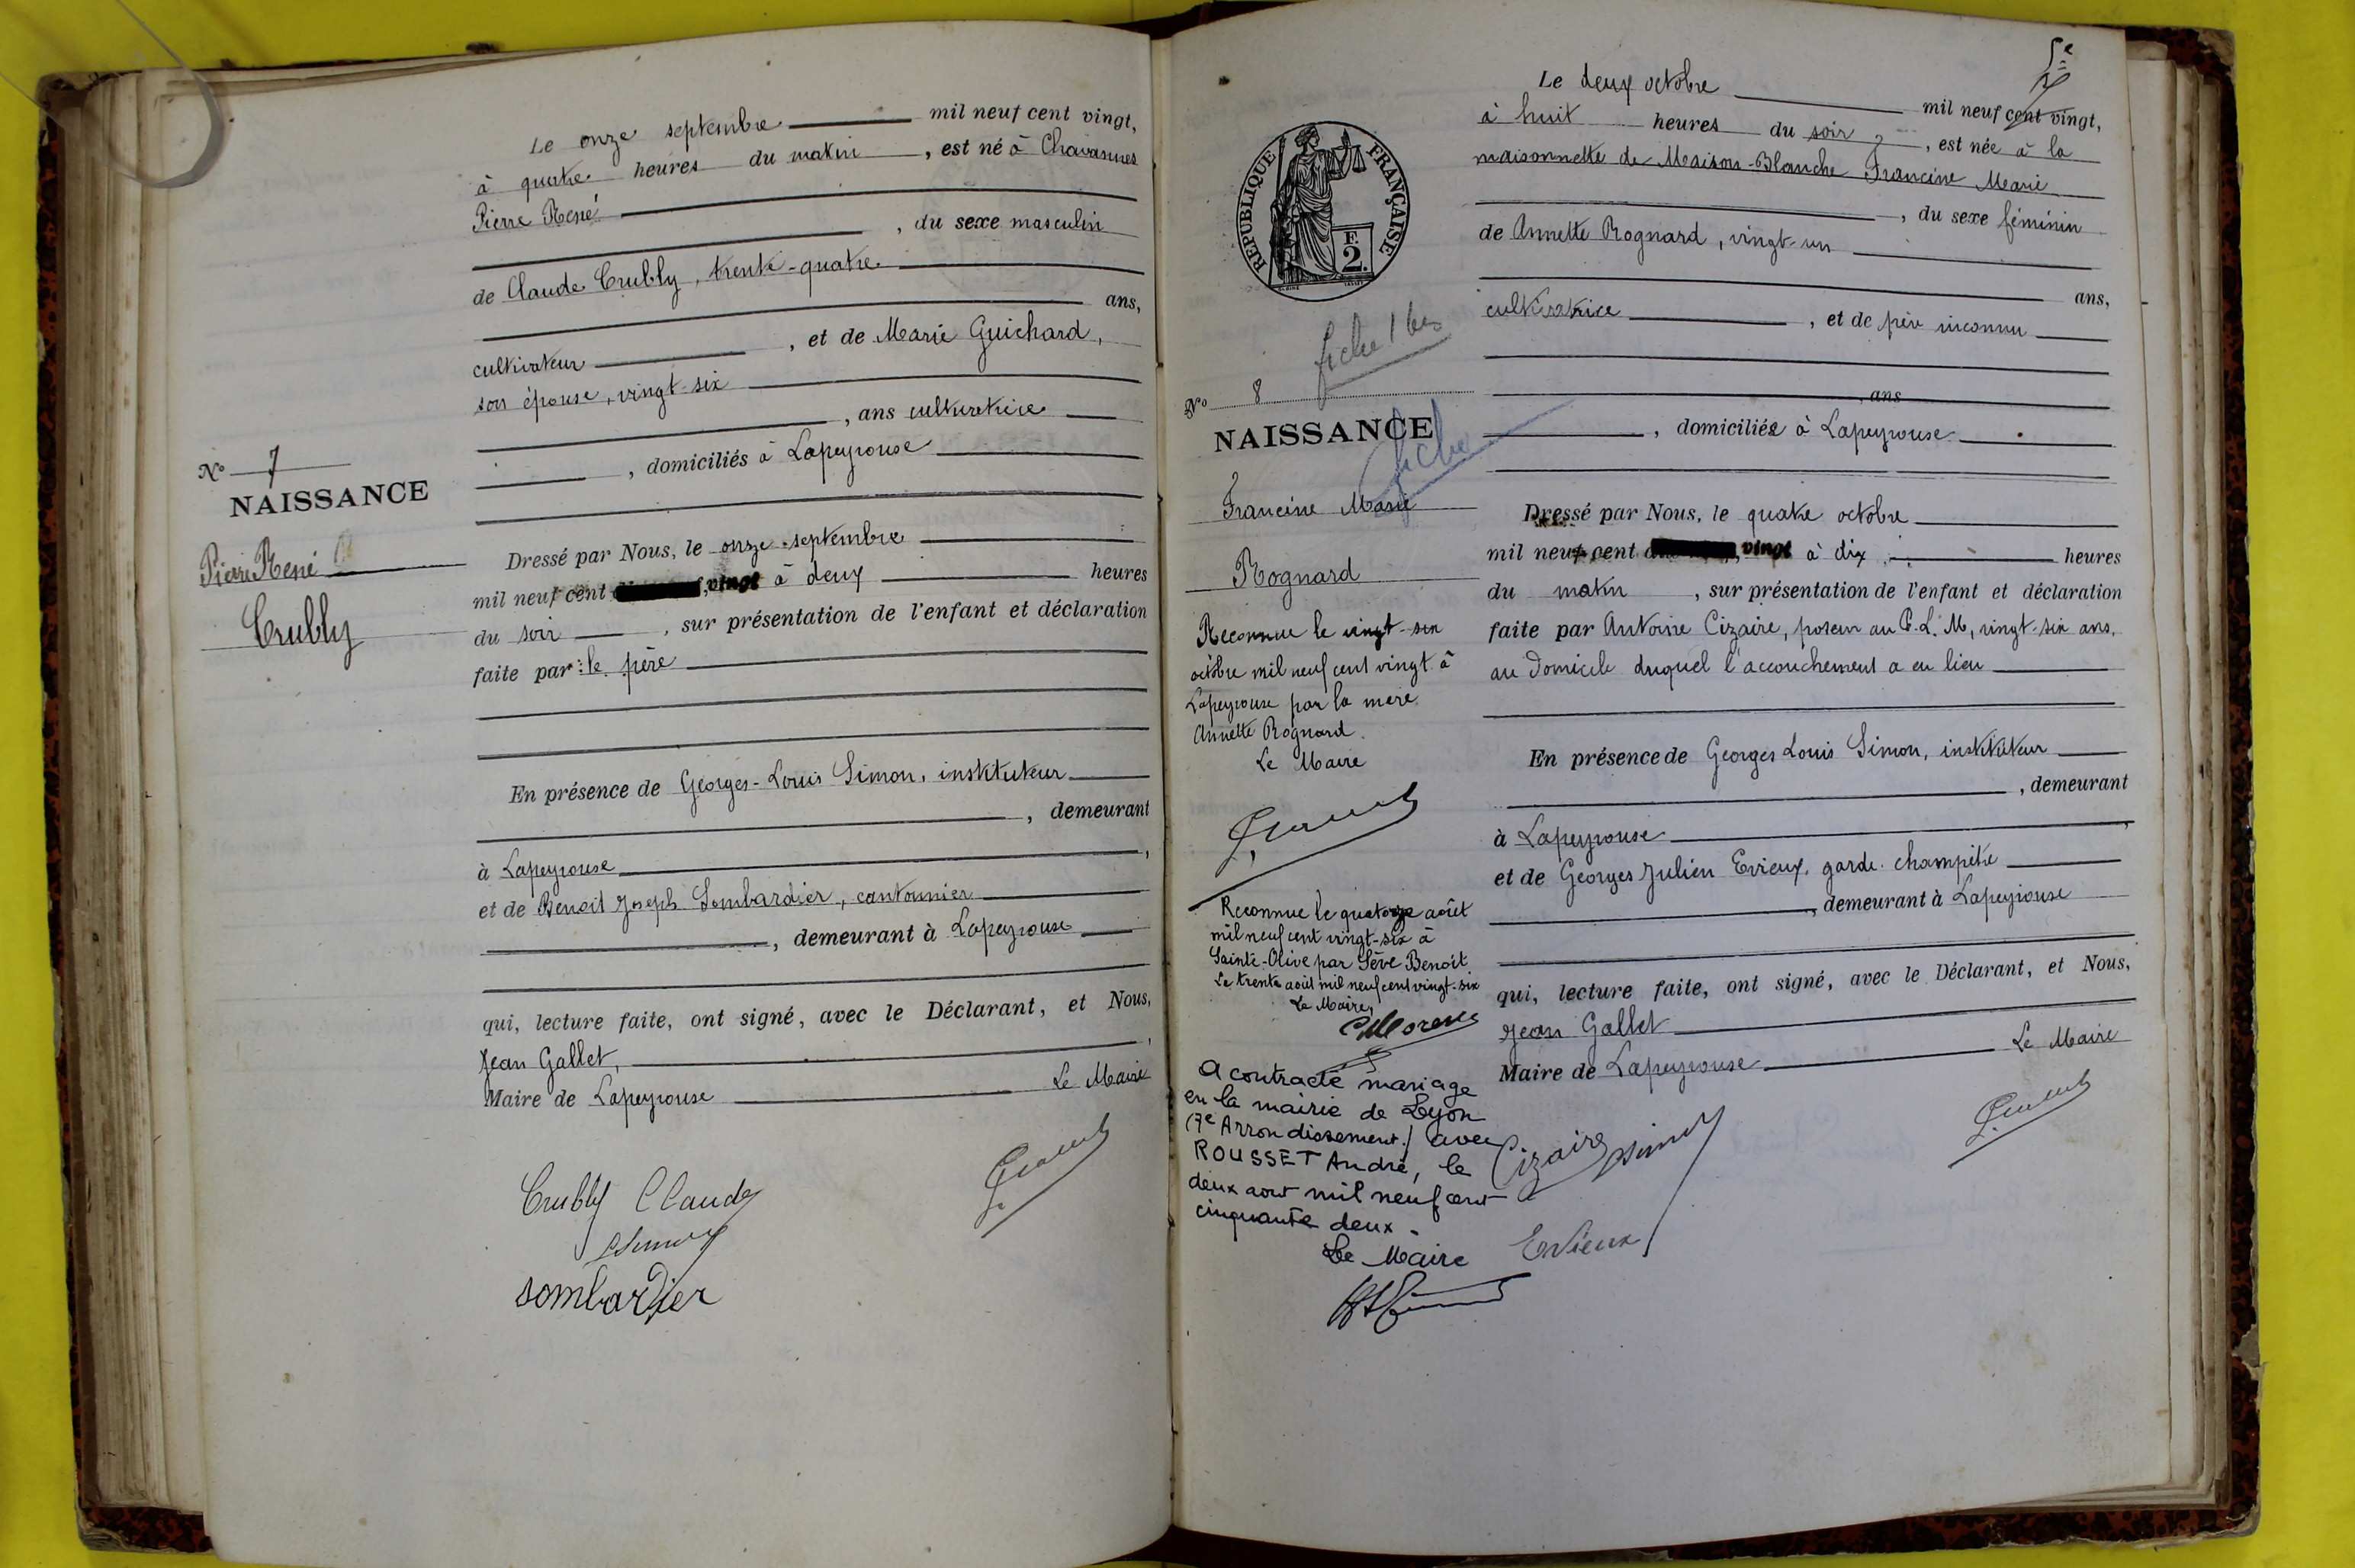 Le onze septembre mil neuf cent vingt,
à quatre heures du matin, est né à Chavannes
Pierre René
, du sexe masculin
de Claude Crubly, trente-quatre
ans,
cultivateur, et de Marie Guichard,
son épouse, vingt-six
, ans cultivatrice
, domiciliés à Lapeyrouse
N° 7
NAISSANCE
Pierre René
Crubly
Dressé par Nous, le onze septembre
mil neuf cent vingt à deux heures
du soir, sur présentation de l'enfant et déclaration
faite par : le père
En présence de Georges-Louis Simon, instituteur
, demeurant
à Lapeyrouse,
et de Benoit Joseph Sombardier, cantonnier
, demeurant à Lapeyrouse
qui, lecture faite, ont signé, avec le Déclarant, et Nous,
Jean Gallet,
Maire de Lapeyrouse Le Maire
Crubly Claude
Simon
Sombardier
5e
Le deux octobre mil neuf cent vingt,
à huit heures du soir, est née à la
maisonnette de Maison-Blanche Francine Marie
, du sexe féminin
de Annette Rognard, vingt-un
ans,
cultivatrice, et de père inconnu
ans
, domiciliée à Lapeyrouse
RÉPUBLIQUE FRANÇAISE
F.
2.
fiche
N° 8
NAISSANCE
fiche
Francine Marie
Rognard
Reconnue le vingt-six
octobre mil neuf cent vingt à
Lapeyrouse par la mère
Annette Rognard.
Le Maire
Reconnue le quatorze août
mil neuf cent vingt-six à
Sainte-Olive par Sève Benoît.
Le trente août mil neuf cent vingt-six
Le Maire,
A contracté mariage
en la mairie de Lyon
(7e Arrondissement) avec
ROUSSET André, le
deux aout mil neuf cent
cinquante deux.
Le Maire
Dressé par Nous, le quatre octobre
mil neuf cent vingt à dix heures
du matin, sur présentation de l'enfant et déclaration
faite par Antoine Cizaire, poseur au P. L. M, vingt-six ans,
au domicile duquel l'accouchement a eu lieu
En présence de Georges Louis Simon, instituteur
, demeurant
à Lapeyrouse,
et de Georges Julien Evieux, garde-champêtre
, demeurant à Lapeyrouse
qui, lecture faite, ont signé, avec le Déclarant, et Nous,
Jean Gallet
Maire de Lapeyrouse Le Maire
Cizaire Simon
Evieux